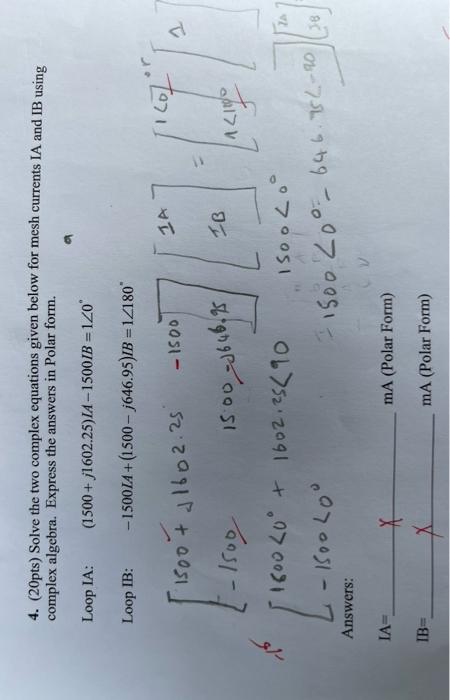 4. (20pts) Solve the two complex equations given below for mesh currents IA and IB using
complex algebra. Express the answers in Polar form.
Loop IA: (1500 + j1602.25)IA – 1500IB = 1∠0°
Loop IB: –1500IA + (1500 – j646.95)IB = 1∠180°
[1500 + J1602.25 -1500] [IA] = [1<0°] or [1
-1500 1500 -J646.95] [IB] [1<180]
[1500<0° + 1602.25<90 1500<0° ] [IA]
-1500<0° = 1500<0° - 646.95<-90] [IB]
Answers:
IA= mA (Polar Form)
IB= mA (Polar Form)